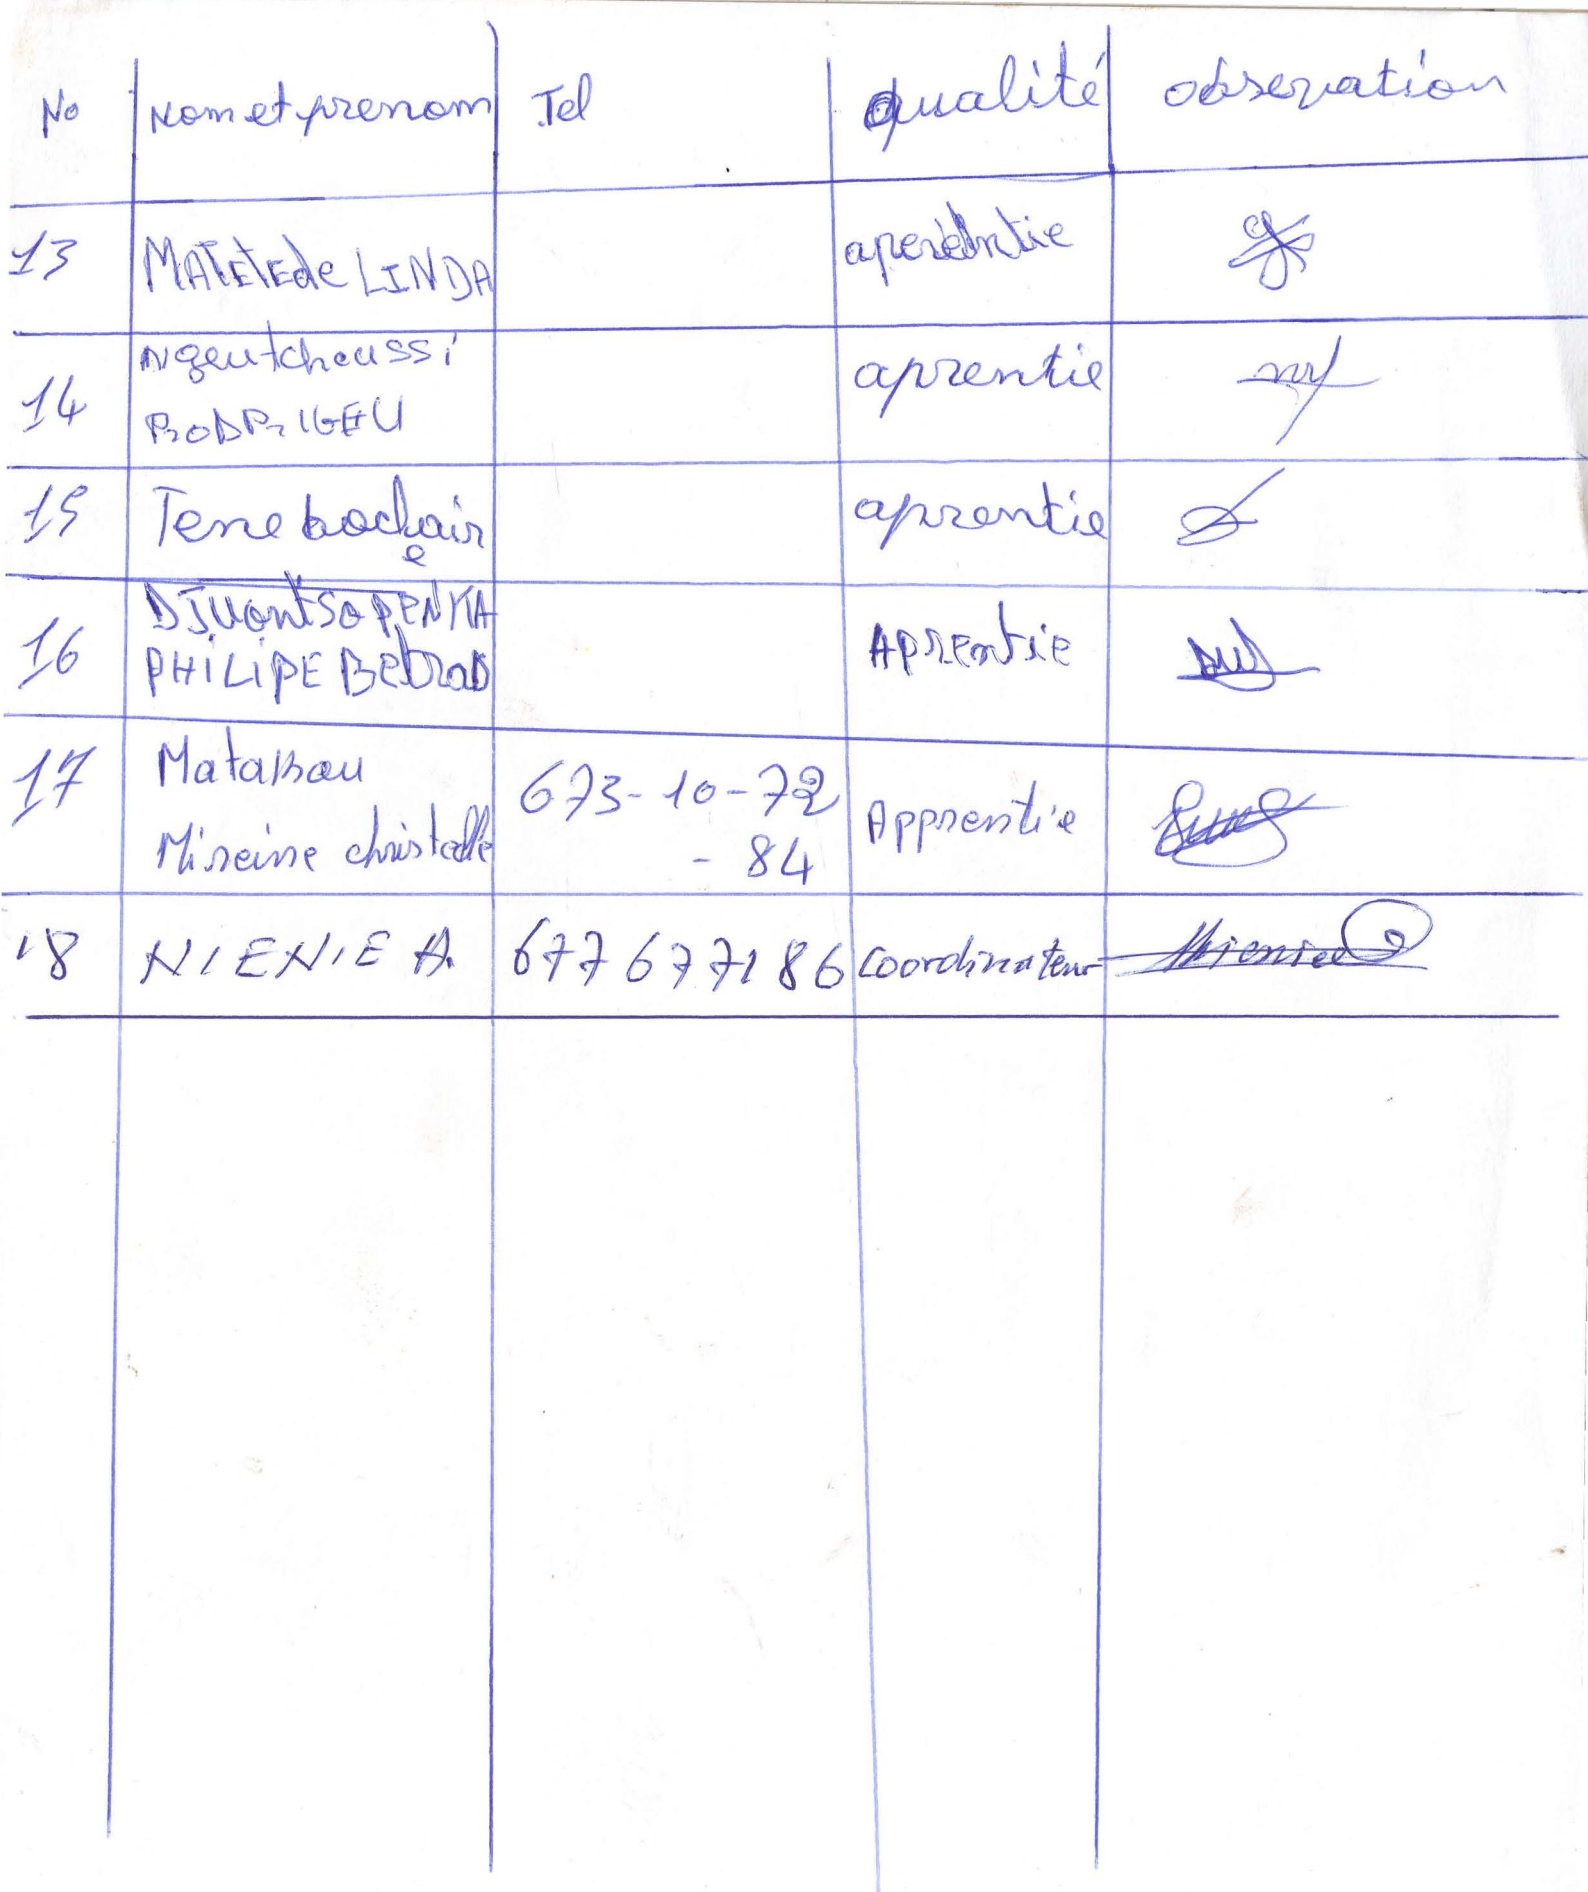 No Nom et prenom Tel qualité obsevation
13 MATETEde LINDA aprentie
14 Ngeutchoussi RODRIGEU aprentie
15 Tene boclaire aprentie
16 DJUontSo PENKA PHILIPE Betrad Aprentie
17 Matakou Mireine christelle 673-10-72-84 Apprentie
18 NIENIE A. 677677186 Coordinateur